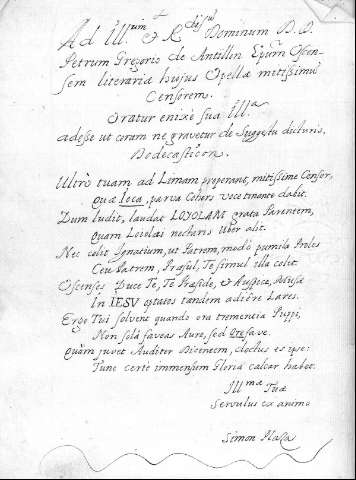 Ad Illum & Rdissm Dominum D. D.
Petrum Gregorio de Antillon Epum Oscen-
sem literariæ hujus Opellæ mitissimum
Censorem.
Oratur enixè sua Illa
adesse ut coram ne gravetur de Suggestu dicturis,
Dodecasticon.
Ultrò tuam ad Limam properant, mitissime Censor,
quæ Ioca, parva Cohors voce tonante dabit.
Dum ludit, laudat LOYOLAM grata Parentem,
quam Loiolæ nectaris Uber alit.
Nec colit Ignatium, ut Patrem, modò pumila Proles
Ceu Patrem, Præsul, Te simul illa colit.
Oscenses Duce Te, Te Præside, & Auspice, Musæ
In IESU optatos tandem adiêre Lares.
Ergo Tui solvent quando ora trementia Puppi,
Non solâ faveas Aure, sed Ore fave.
quàm juvet Auditor Dicentem, doctus es ipse:
Tunc certe immensum Gloria calcar habet.
Illmæ Tuæ
Servulus ex animo
Simon Plaza